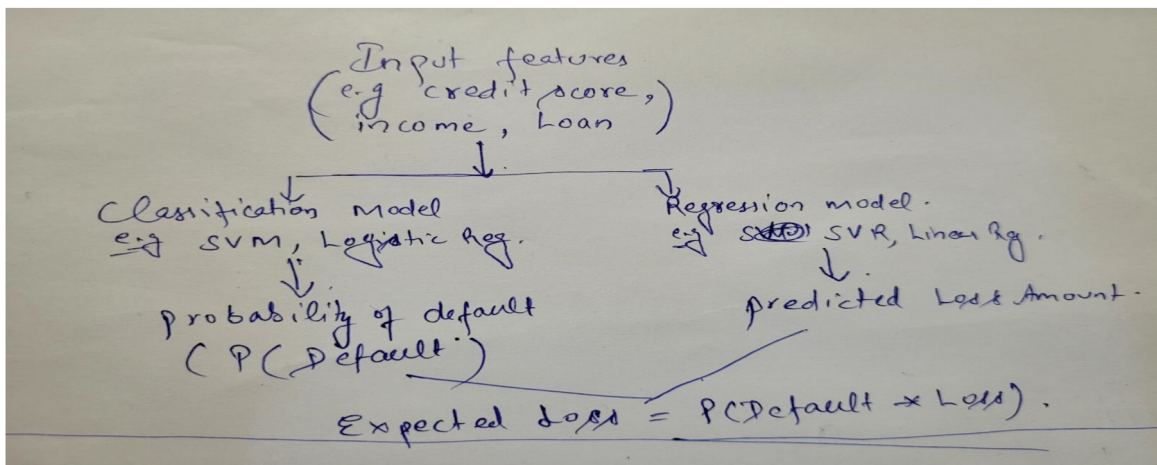 Input features
(e.g credit score,
income, Loan)
Classification Model
e.g SVM, Logistic Reg.
Probability of default
(P(Default)
Regression model.
e.g SVR, Linear Rg.
predicted Loss Amount.
Expected Loss = P(Default * Loss).